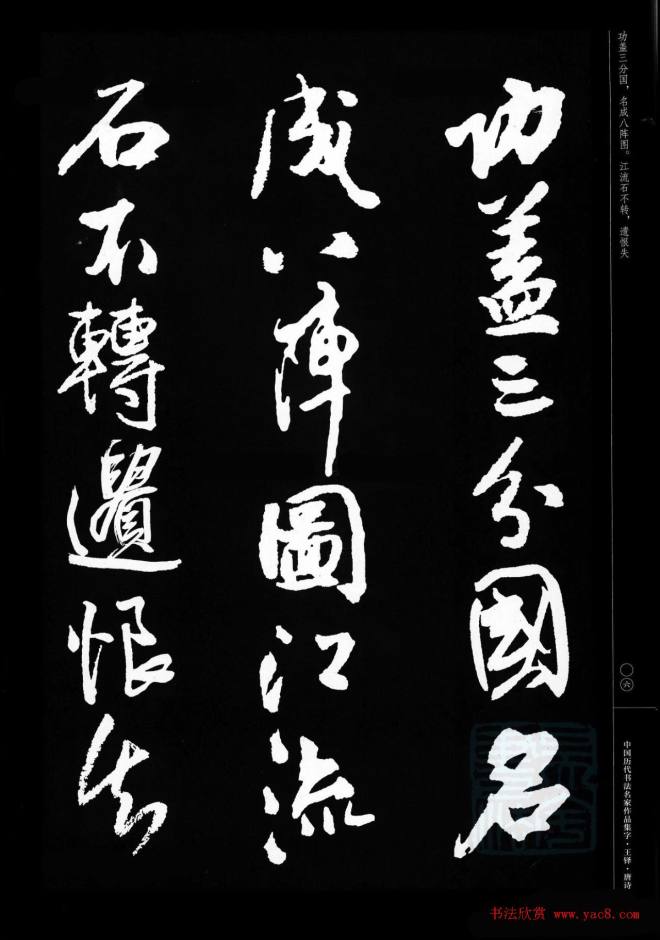 功盖三分国，名成八阵图。江流石不转，遗恨失
功蓋三分國名
成八陣圖江流
石不轉遺恨失
〇六
中国历代书法名家作品集字·王铎·唐诗
书法欣赏 www.yac8.com